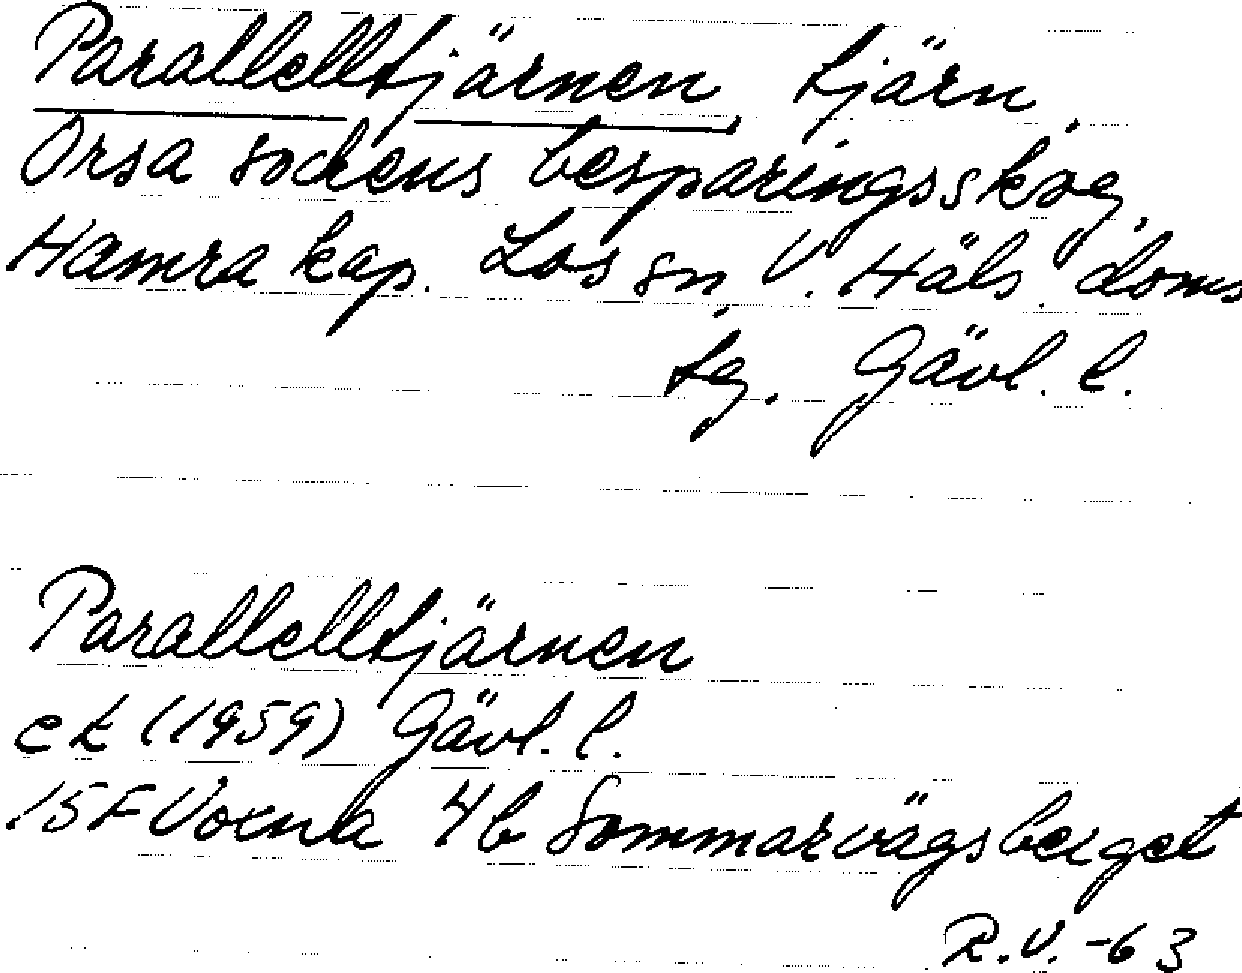 Parallelltjärnen, tjärn,
Orsa sockens besparingsskog,
Hamra kap. Los sn, V. Häls. doms
tg. Gävl. l.
Parallelltjärnen
ek (1959) Gävl. l.
15F Voxna 4b Sommarvägsberget
R.V. -63